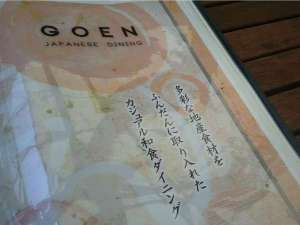 GOEN
JAPANESE DINING
多彩な地産食材を
ふんだんに取り入れた
カジュアル和食ダイニング